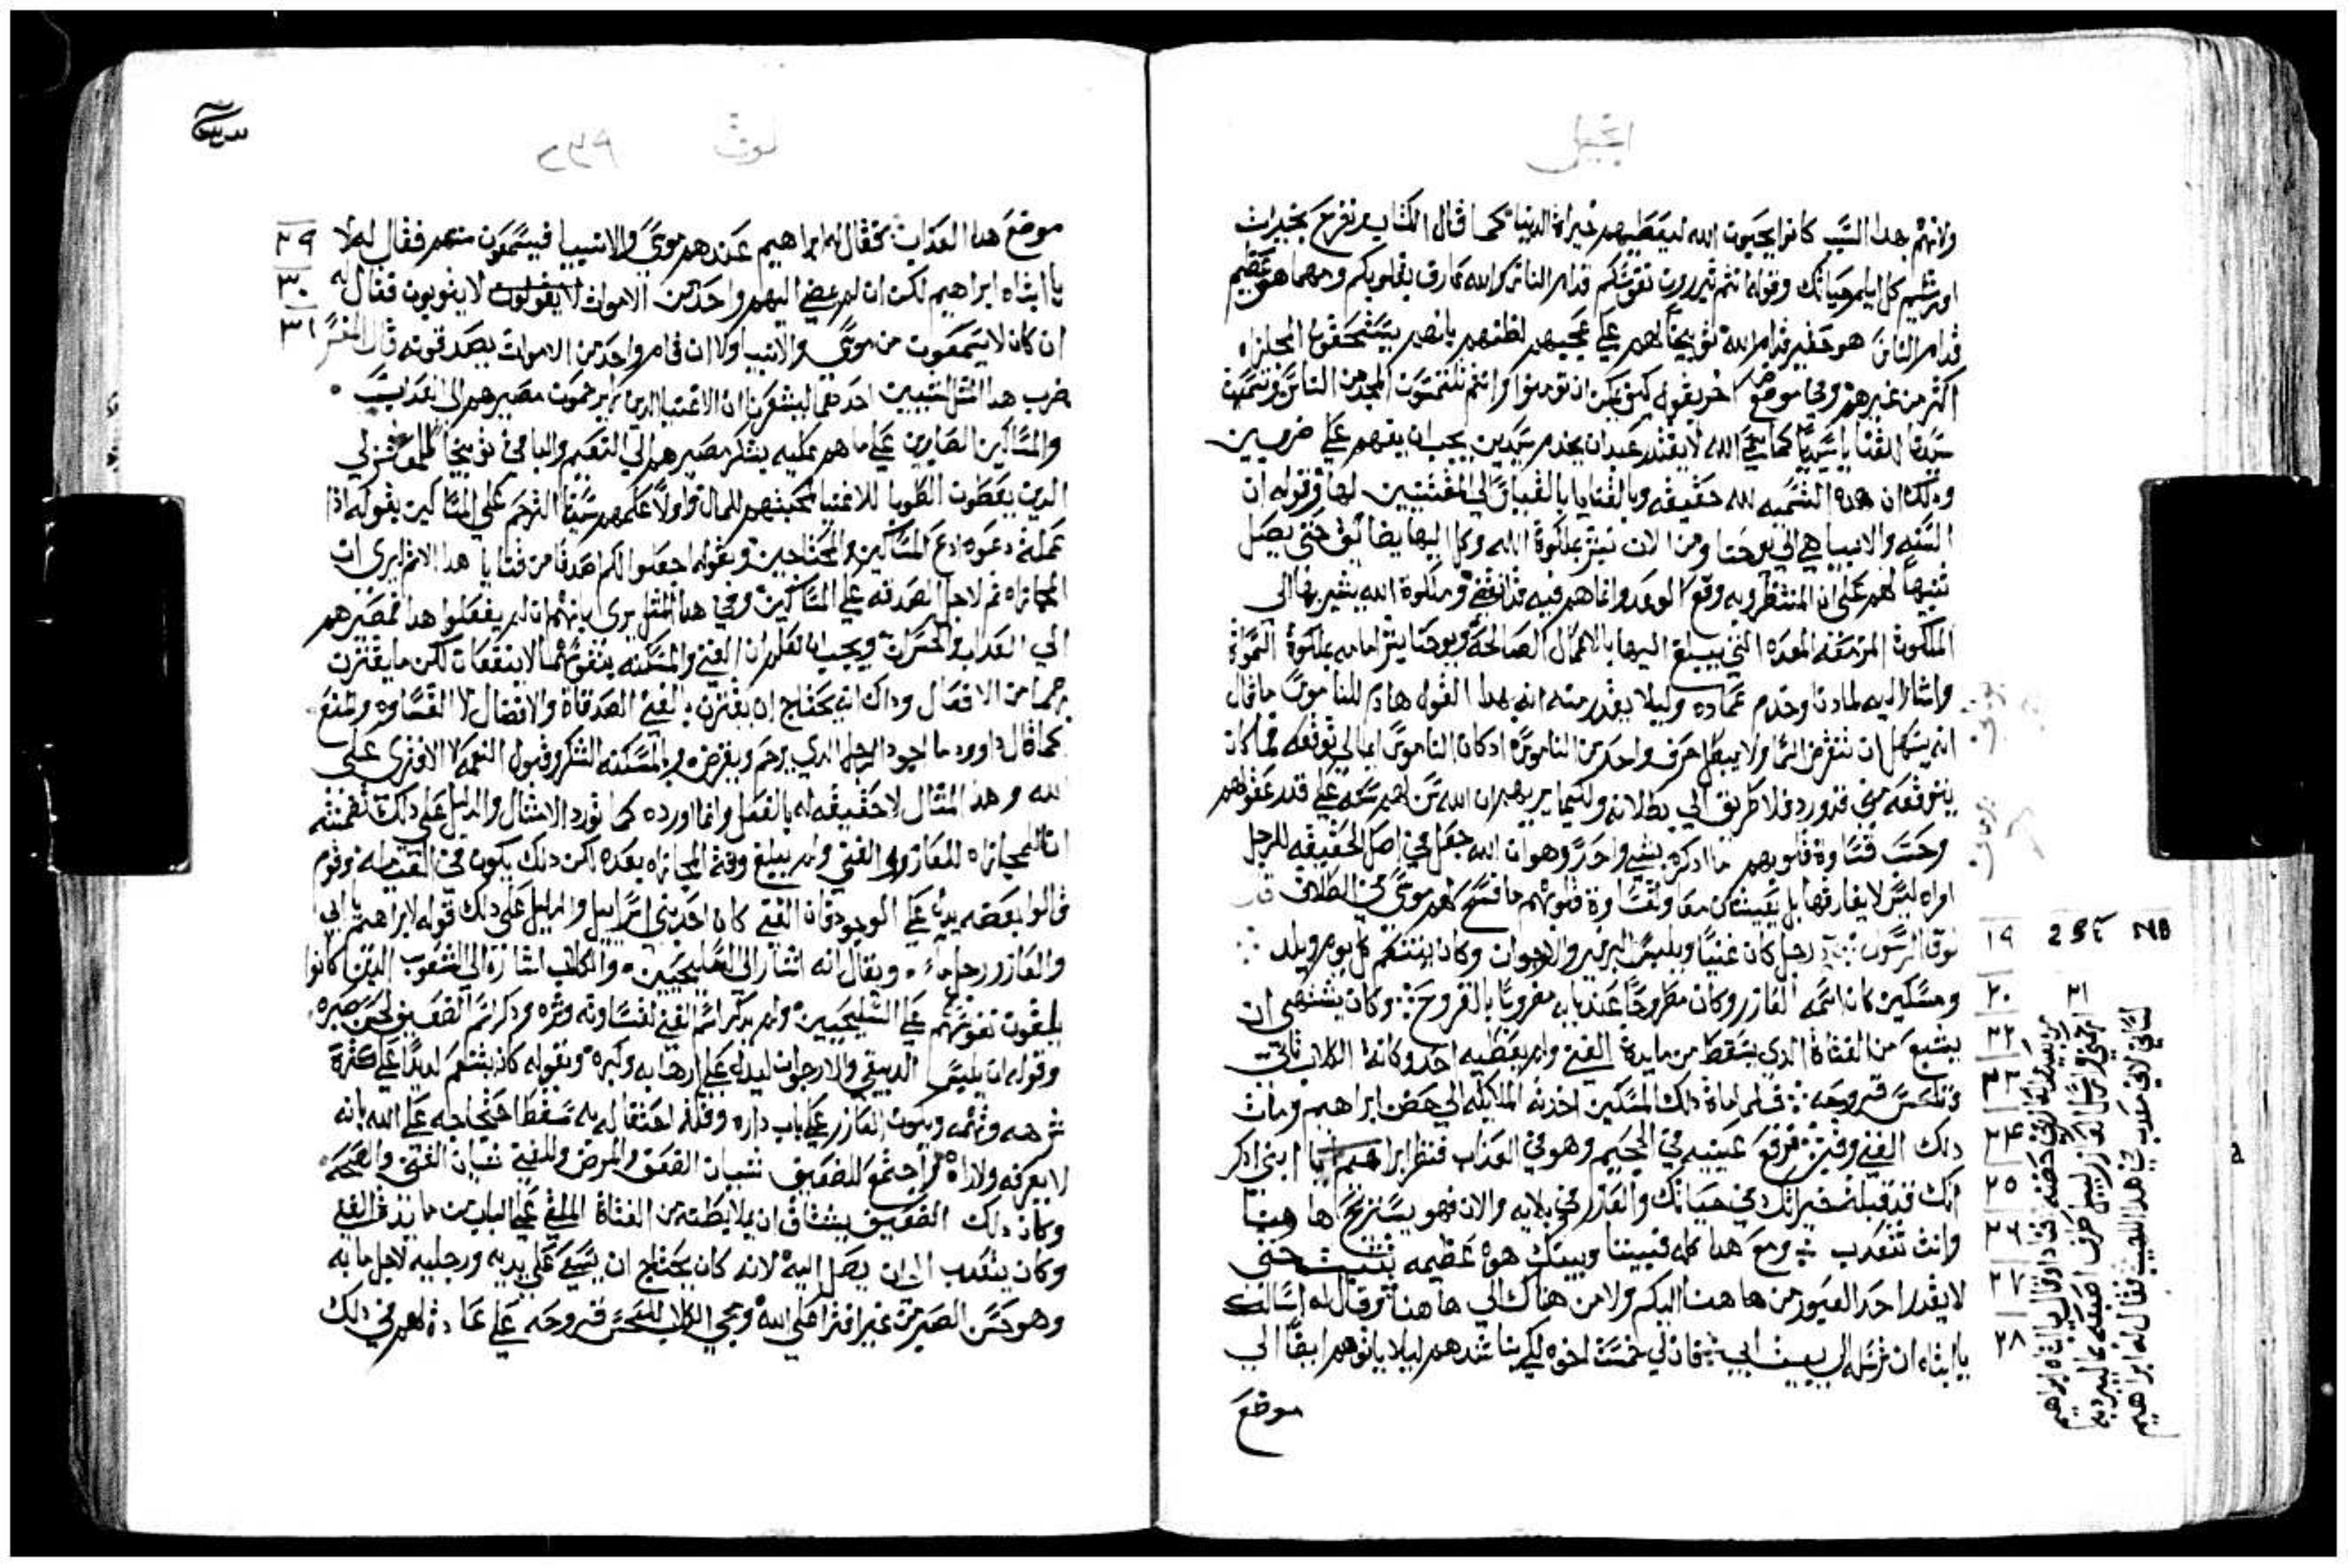 انجيل
ولانهم بهدا السبب كانوا يحبون الله ليعطيهم خيراة الدنيا كما قال الكتاب تفرح بخيرات
اورشليم كل ايام حياتك وقوله انتم تبررون نفوسكم قدام الناس والله عارف بقلوبكم ومهما هو عظيم
قدام الناس هو حقير قدام الله توبيخا لهم علي عجبهم لظنهم بانهم يستحقون المجازاه
اكثر من غيرهم وفي موضع اخر يقول كيف يمكن ان تومنوا وانتم تلتمسون المجد من الناس وتسمية
سيدنا للقنايا سيديا كما سمي الله لا يقدر عبدان يخدم سيدين يجب ان يفهم علي ضربين
ودلك ان هده التسميه لله حقيقه وبالقنايا بالقياس الي المقتنيين لها وقوله ان
السنه والانبيا هي الي يوحنا ومن الان تبشر بملكوة الله وكل اليها يضايق حتي يصل
تنبيها لهم علي ان المنتظر به وقع الوعد وانما هم فيه قد انقضي وملكوة الله يشير بها الي
الملكوت المزمعه المعده التي يبلغ اليها بالاعمال الصالحة ويوحنا بشر امامه بملكوة السموة
واشار اليه لما دنا وخدم عماده وليلا يقدر منه انه بهدا القول هادم للناموس ما قال
انه يسهل ان تنقرض السما ولا يبطل حرف واحد من الناموس اد كان الناموس انما لي توقعه فما كان
يتوقعه مني قد ورد فلا طريق الي بطلانه ولكيما يريهم ان الله سن لهم سنه علي قدر عقولهم
وحسب قساوة قلوبهم ما ادكره بشي واحد وهو ان الله جعل في اصل الحقيقه للرجل
امراه ليس لا يفارقها بل يعيشا معا ولقساوة قلوبهم ما فسح لهم موسي في الطلاق قال
لوقا الرسول رجل كان غنيا ويلبس البرير والارجوان وكان يتنعم كل يوم ويلد
١٩ 295 NB
ومسكين كان اسمه العازر وكان مطروحا عند بابه مضروبا بالقروح وكان يشتهي ان
٢٠
يشبع من الفتاة الدي يسقط من مايدة الغني ولم يعطيه احد وكانة الكلاب تاتي
٢٢
فتلحس قروحه فلما ماة دلك المسكين اخدته الملايكه الي حضن ابراهيم ومات
٢٣
دلك الغني وقبر فرفع عينيه في الجحيم وهو في العداب فنظر ابراهيم يا ابني ادكر
٢٤
انك قد قبلة خيراتك في حياتك والعازر في بلايه والان فهو يستريح ها هنا
٢٥
وانت تتعدب ومع هدا كله فبيننا وبينك هوه عظيمه تثبت حتي
٢٦
لا يقدر احد العبور من ها هنا اليكم ولا من هناك الي ها هنا وقال له اسالك
٢٧
يا ابتاه ان ترسله الي بيت ابي فان لي خمسة اخوه لكي يناشدهم ليلا ياتوهم ايضا الي
٢٨
موضع
من بعيد والعازر في حضنه فنادا وقال يا ابتاه ابراهيم
٢١
ارحمني وارسل العازر ليبل طرف اصبعه بما ليبرد به
لساني لاني معدب في هدا اللهيب فقال له ابراهيم
لوقا ٢٣٩
موضع هدا العداب فقال له ابراهيم عندهم موسي والانبيا فيسمعون منهم فقال له لا
٢٩
يا ابتاه ابراهيم لكن ان لم يمضي اليهم واحد من الاموات لا يقولون لا يتوبون فقال له
٣٠
ان كان لا يسمعون من موسي والانبيا ولا ان قام واحد من الاموات يصدقونه قال المفسر
٣١
ضرب هدا المثل لسببين احدهما ليشعرنا ان الاغنيا الدين لا يرحمون مصيرهم الي العداب
والمساكين الصابرين علي ما هم عليه بشكر مصيرهم الي النعيم والباقي توبيخا للمعتزلي
الدين يعطون الطوبا للاغنيا لمحبتهم للمال واولا علمهم سيدنا الترحم علي المساكين بقوله ادا
عملة دعوه ادع المساكين والمحتاجين وبقوله اجعلوا لكم اصدقا من قنايا هدا الاثم ليري ان
المجازاه ثم لاجل الصدقه علي المساكين وفي هدا المثل يري بانهم ان لم يفعلوا هدا فمصيرهم
الي العداب والحسرات ويجب ان تعلم ان الغني والمسكنه بنفوسهما لا ينفعان لكن ما يقترن
بهما من الافعال وداك انه يحتاج ان يقترن بالغني الصدقاة والافضال لا القساوه والمنع
كما قال داوود ما اجود الرجل الدي يرحم ويقرض وبالمسكنه الشكر وقبول النعمه لا الافتري علي
الله وهدا المثال لا حقيقه له بالفعل وانما اورده كما تورد الامثال والدليل علي دلك تضمنته
ان المجازاه للعازر والغني ولم يبلغ وقة المجازاه بعد لكن دلك يكون في القيامه وقوم
قالوا بعضهم بدا علي الوجود فان الغني كان احد بني اسراييل والدليل علي دلك قوله لابراهيم يا ابي
والعازر رجل ما ويقال انه اشار الي السليحيين والكلاب اشارة الي الشعوب الدين كانوا
يلقون نفوسهم علي السليحيين ولم يدكر اسم الغني لقساوته وشره ودكر اسم الضعيف لحسن صبره
وقوله ان يلبس الدبيقي والارجوان ليدل علي ارهابه وكبره وبقوله كان يتنعم لديدا علي كثرة
شرهه ونهمه وبكون العازر علي باب داره وقلة احتفاله به سقط احتجاجه علي الله بانه
لا يعرفه ولا راه واجتمع للضعيف سببان الضعف والمرض وللغني سببان الغني والصحه
وكان دلك الضعيف يشتاق ان يملا بطنه من الفتاة الملقي علي الباب من ما يندرف الغني
وكان يتعدب الي ان يصل اليه لانه كان يحتاج ان يسعي علي يديه ورجليه لاجل ما به
وهو حسن الصبر من غير افترا علي الله ومجي الكلاب للحس قروحه علي عادة لهم في دلك